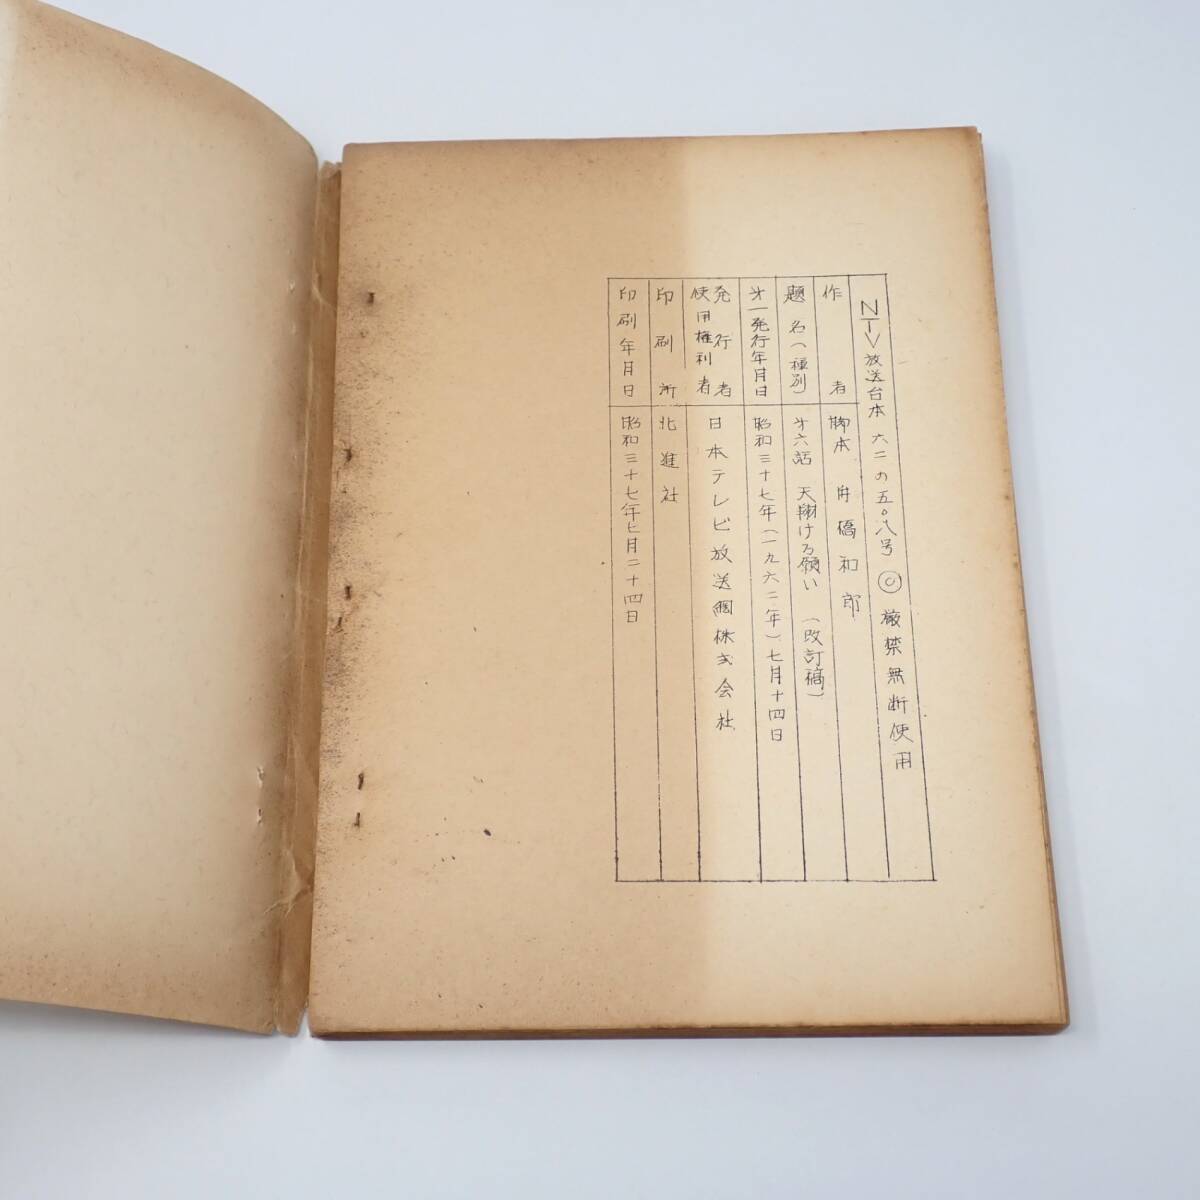 NTV放送台本 六二の五〇八号 Ⓒ 厳禁無断使用
作者 脚本 舟橋和郎
題名(種別) 才六話 天翔ける願い (改訂稿)
才一発行年月日 昭和三十七年(一九六二年)七月十四日
発行者
使用権利者 日本テレビ放送網株式会社
印刷所 北進社
印刷年月日 昭和三十七年七月二十四日